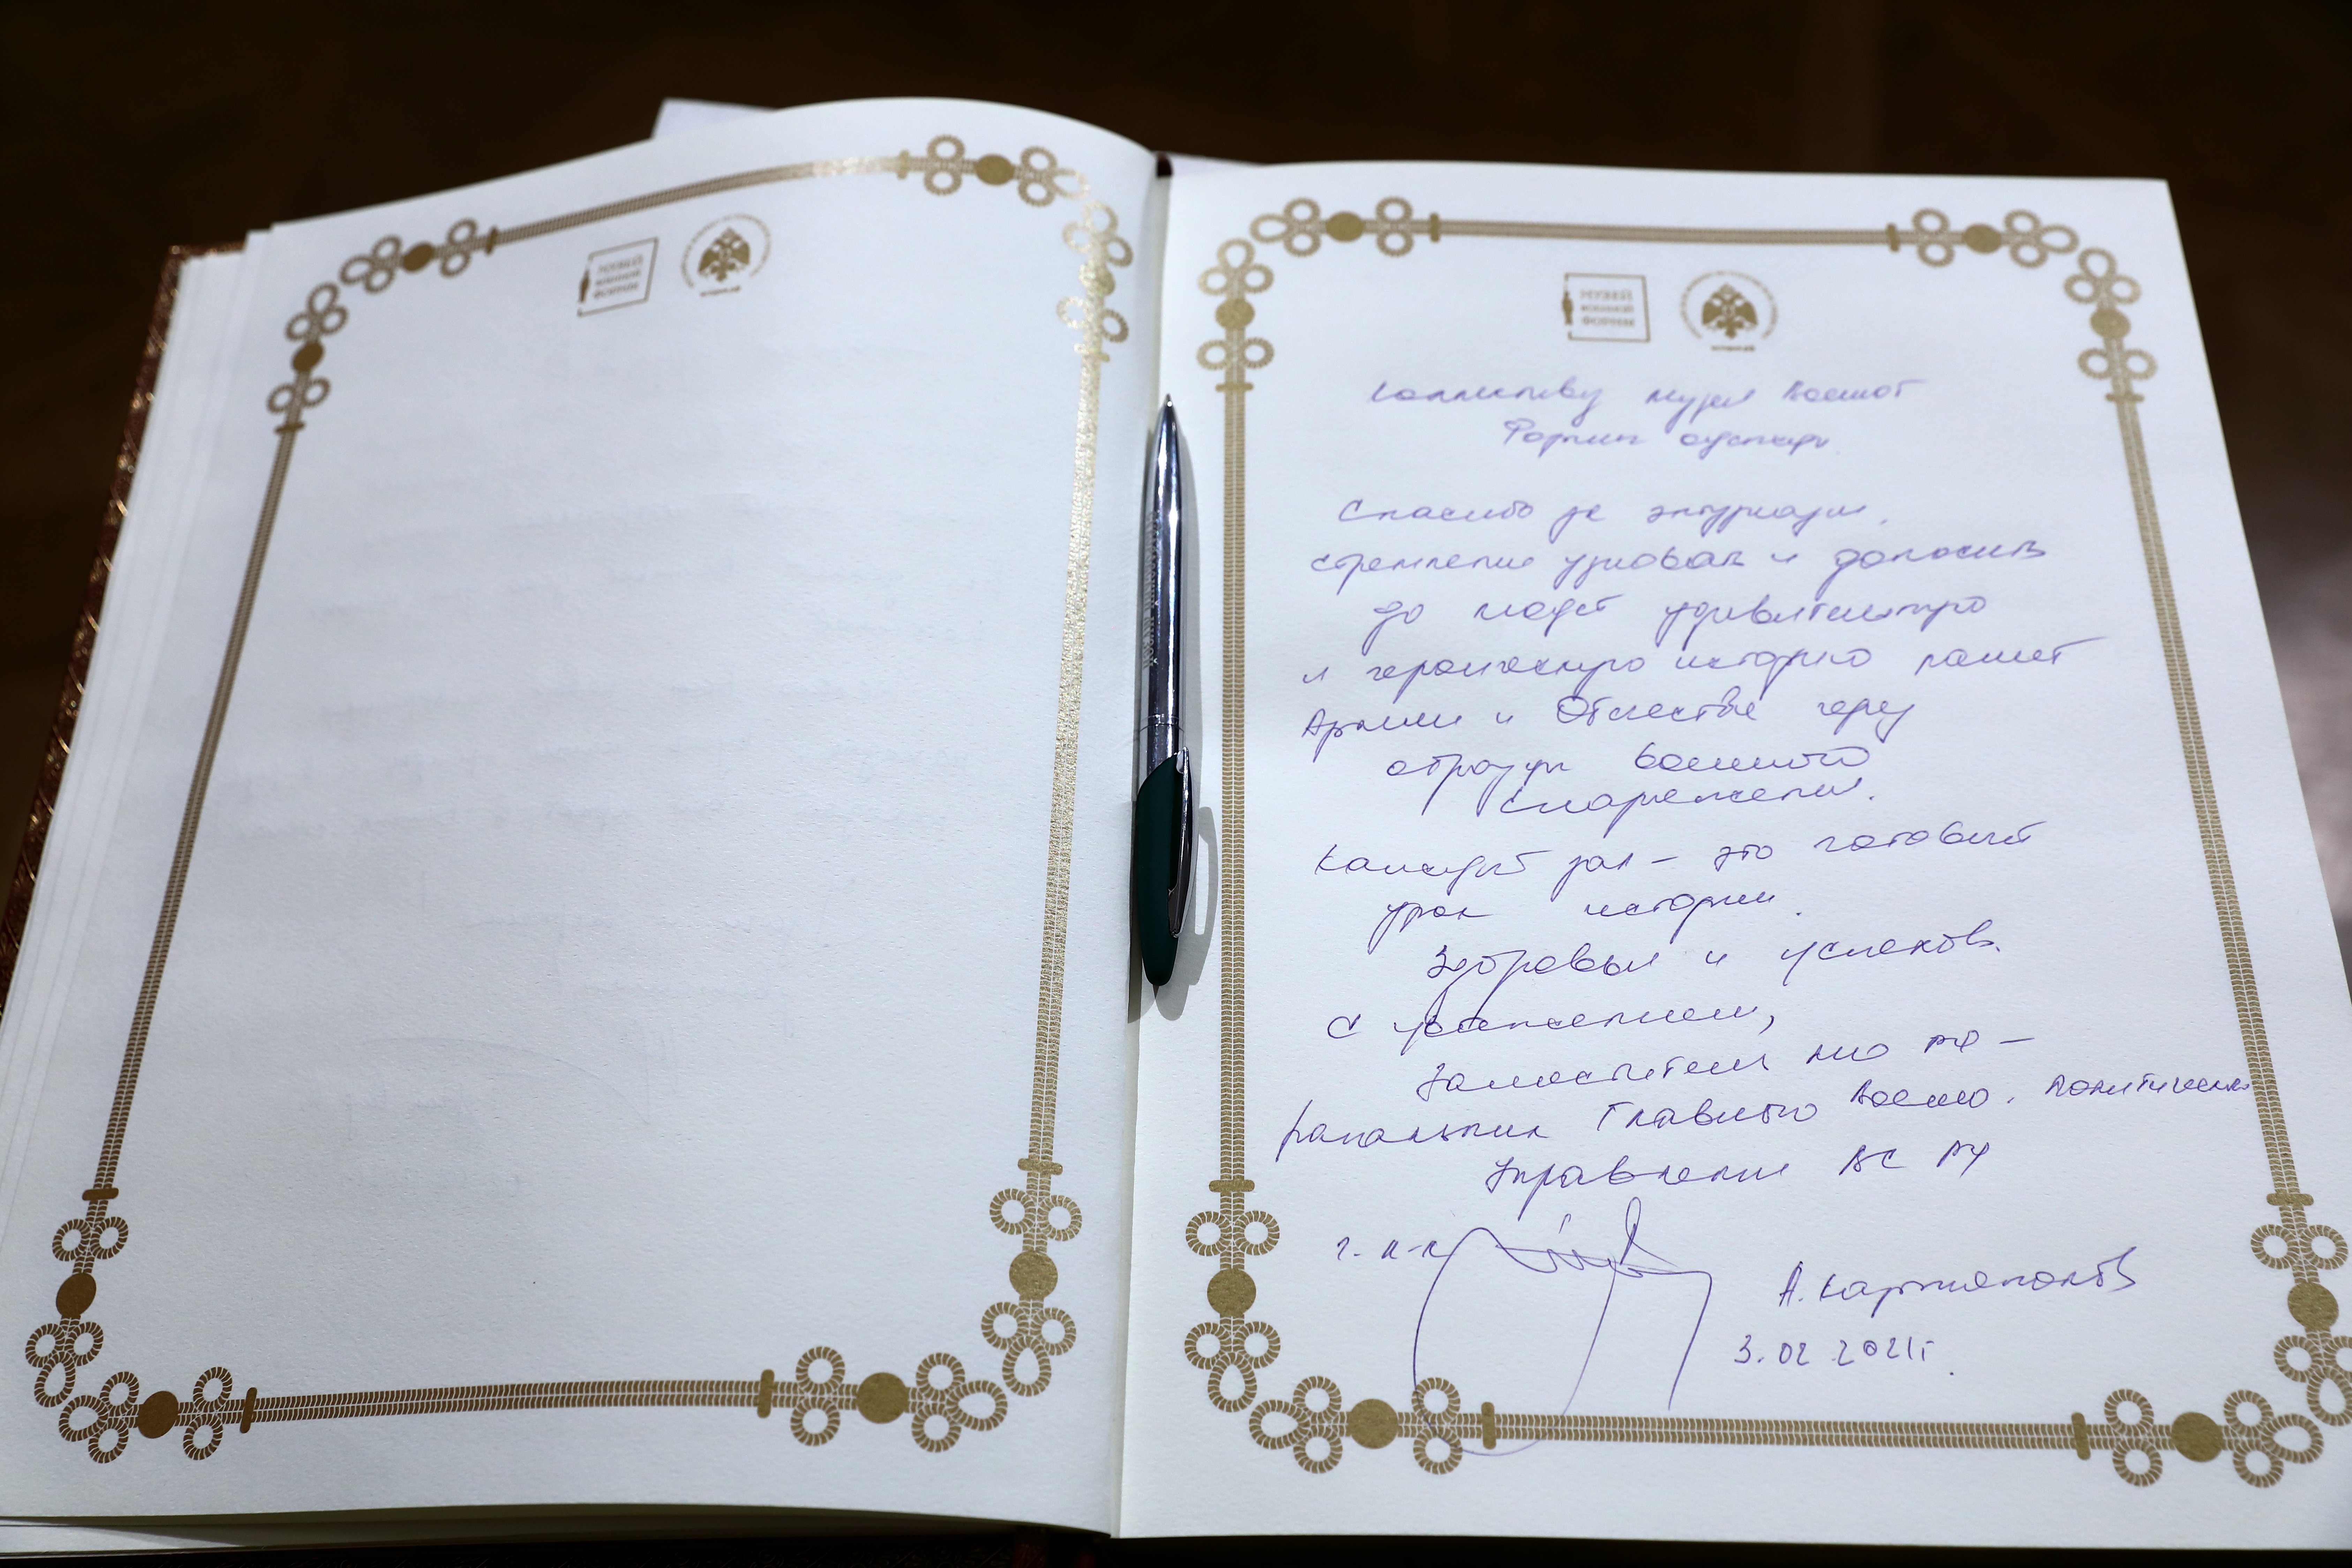 МУЗЕЙ
ВОЕННОЙ
ФОРМЫ
МУЗЕЙ
ВОЕННОЙ
ФОРМЫ
Коллективу музея Военной
Формы одежды
Спасибо за энтузиазм,
стремление узнавать и доносить
до людей удивительную
и героическую историю нашей
Армии и Отечества через
образцы военного
снаряжения.
Каждый зал – это готовый
урок истории.
Здоровья и успехов.
С уважением,
Заместитель МО РФ –
начальник Главного Военно-политического
Управления ВС РФ
г-п-к
А. Картаполов
3.02.2021г.